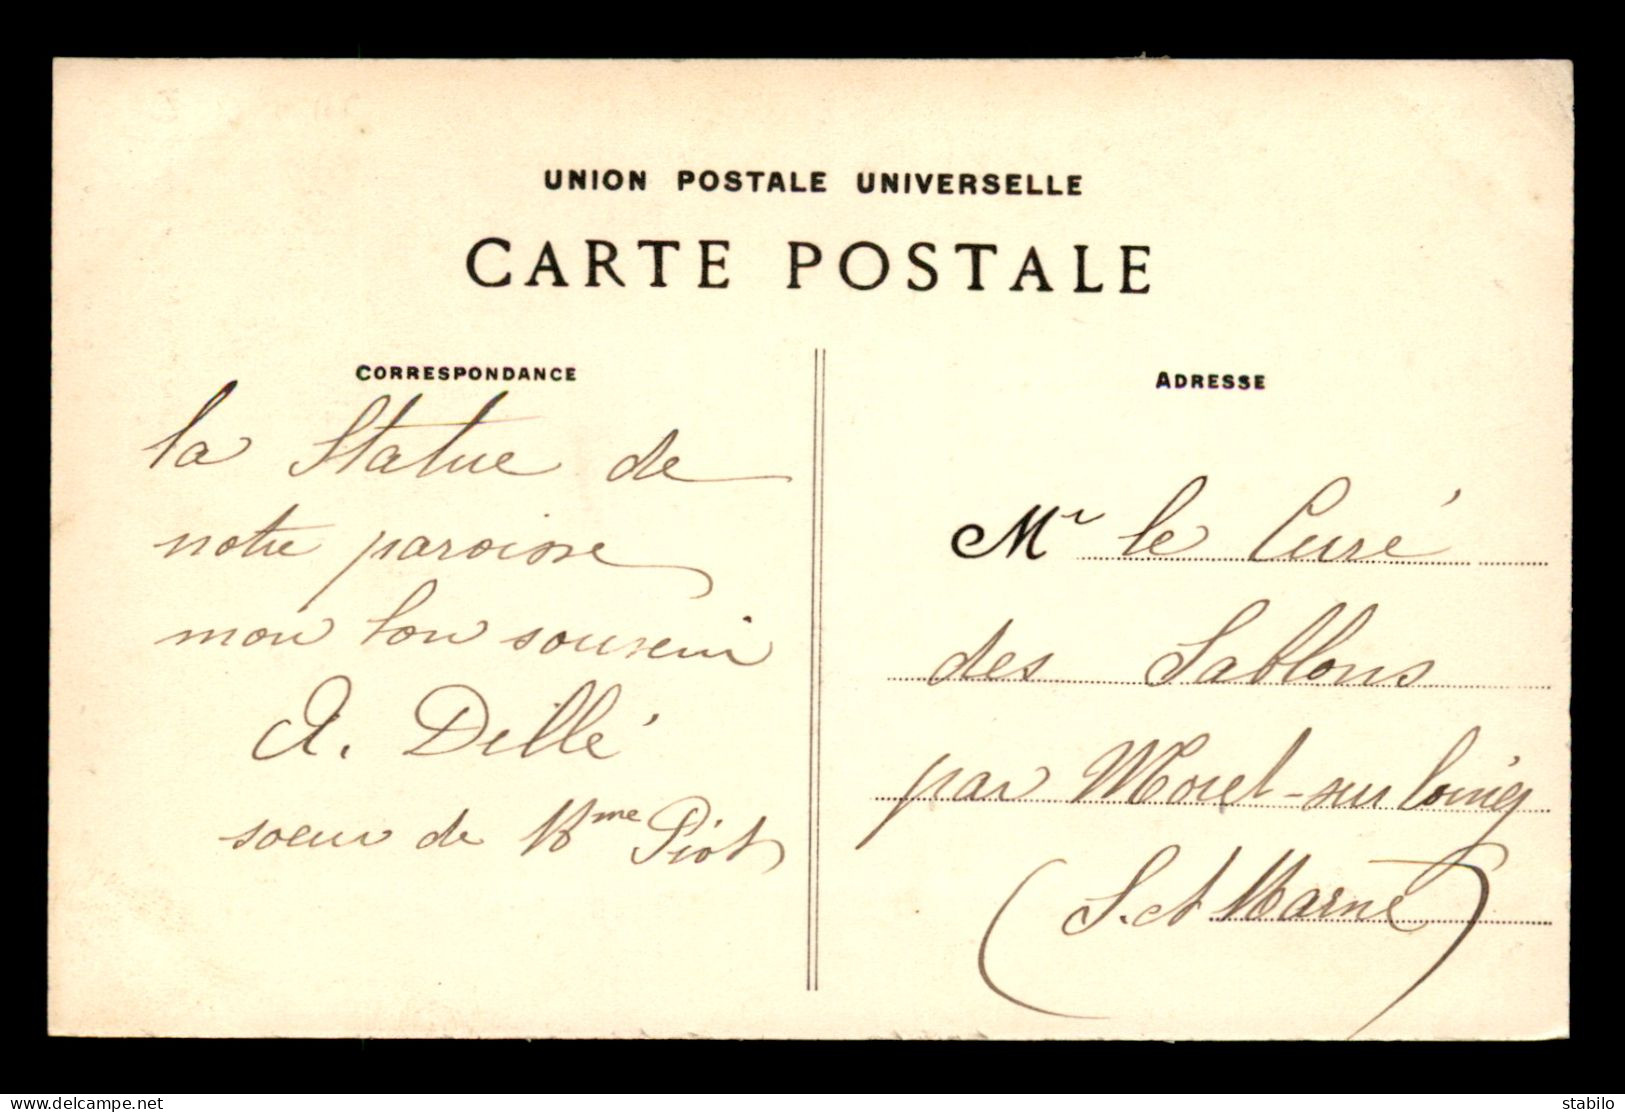 UNION POSTALE UNIVERSELLE
CARTE POSTALE
CORRESPONDANCE
la Statue de
notre paroisse
mon bon souvenir
A. Dillé
soeur de Mme Piot
ADRESSE
Mr le Curé
des Sablons
par Moret-sur loing
(S. et Marne)
www.delcampe.net
stabilo